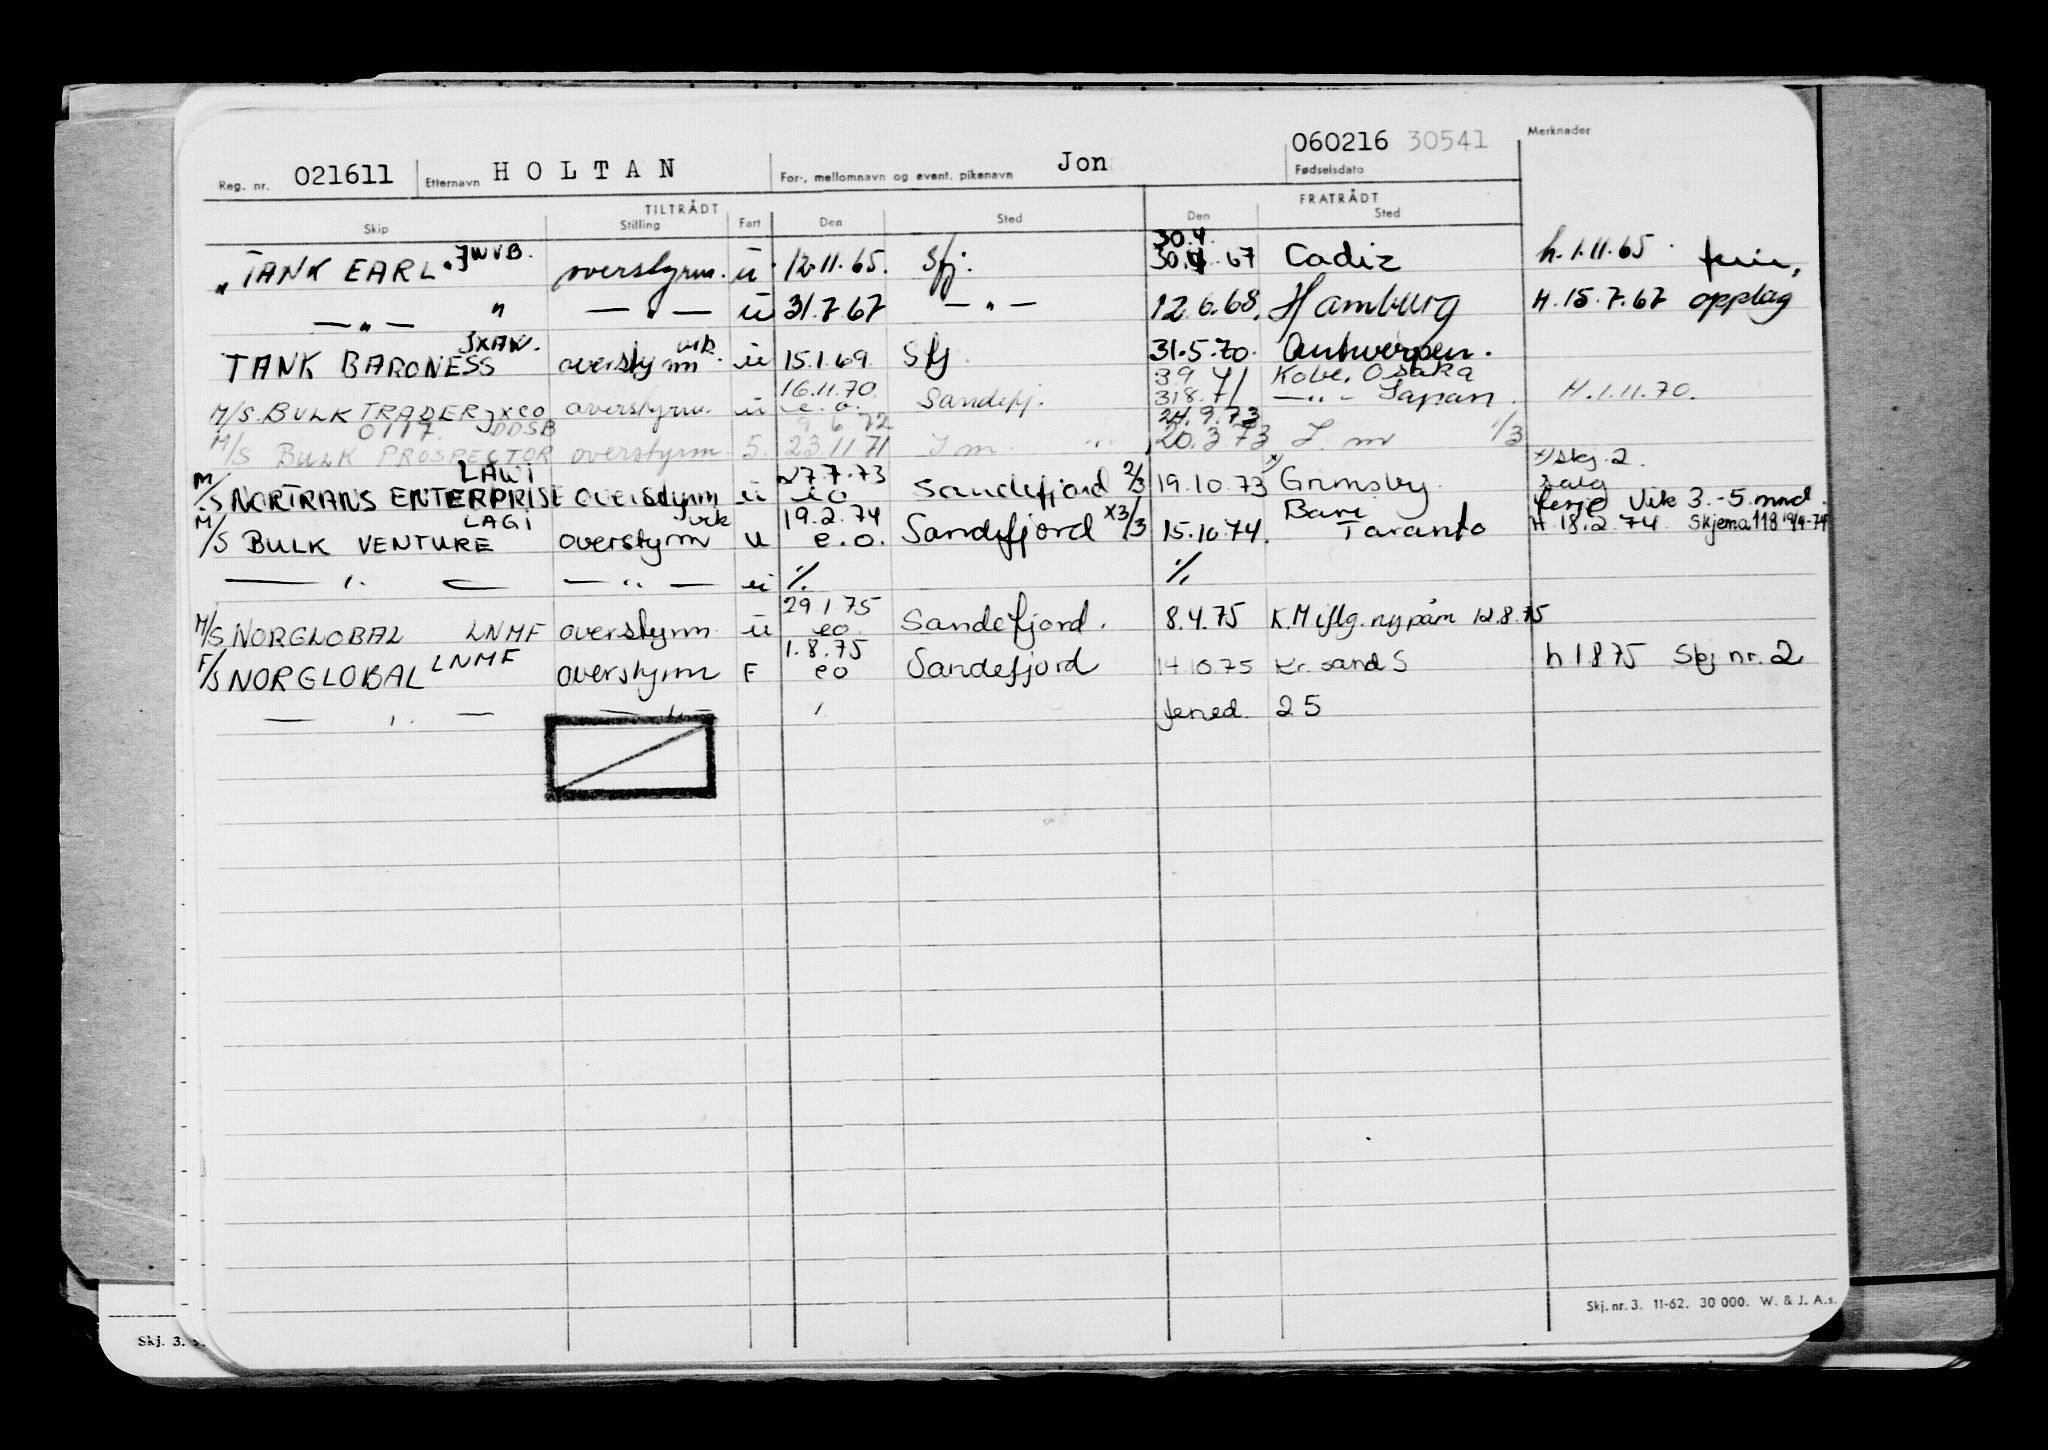 Reg. nr. 021611 Etternavn HOLTAN For-, mellomnavn og event. pikenavn Jon 060216 30541 Fødselsdato Merknader
TILTRÅDT FRATRÅDT
Skip Stilling Fart Den Sted Den Sted
"TANK EARL" JWVB. overstyrm. ü 12.11.65. Sfj. 30.4. 30.4.67 Cadiz h. 1.11.65. ferie,
—„— " —„— ü 31.7.67 —„— 12.6.68. Hamburg H. 15.7.67 opplag
TANK BARONESS JXAW. overstyrm vik. ü 15.1.69. Sfj. 31.5.70. Antwerpen.
M/S. BULK TRADER JXCO overstyrm. ü 16.11.70. e.o. Sandefj. 3.9.71 Kobe, Osaka 31.8.71 —„— Japan. H. 1.11.70.
M/S BULK PROSPECTOR 0117. JDDSB overstyrm. S. 9.6.72 23.11.71 I m. 24.9.73 20.3.73 I. m 1/3
M/S NORTRANS ENTERPRISE LAWI overstyrm ü 27.7.73 eo Sandefjord 2/3 19.10.73 x) Grimsby. x) skj. 2. salg
M/S BULK VENTURE LAGI overstyrm vik u 19.2.74 e.o. Sandefjord x3/3 15.10.74. Bari Taranto ferie Vik 3.-5. mnd. H. 18.2.74. Skjema 118 19/9-74
— „ — — „ — ü %. %.
M/S NORGLOBAL LNMF overstyrm ü 29.1.75 eo Sandefjord. 8.4.75 K.M iflg. ny påm 12.8.75
F/S NORGLOBAL LNMF overstyrm F 1.8.75 eo Sandefjord 14.10.75 Kr. sand S h. 1.8.75 Skj nr. 2
— „ — — „ — 25
Skj. nr. 3. 11-62. 30 000. W. & J. A.s.
Skj. 3.